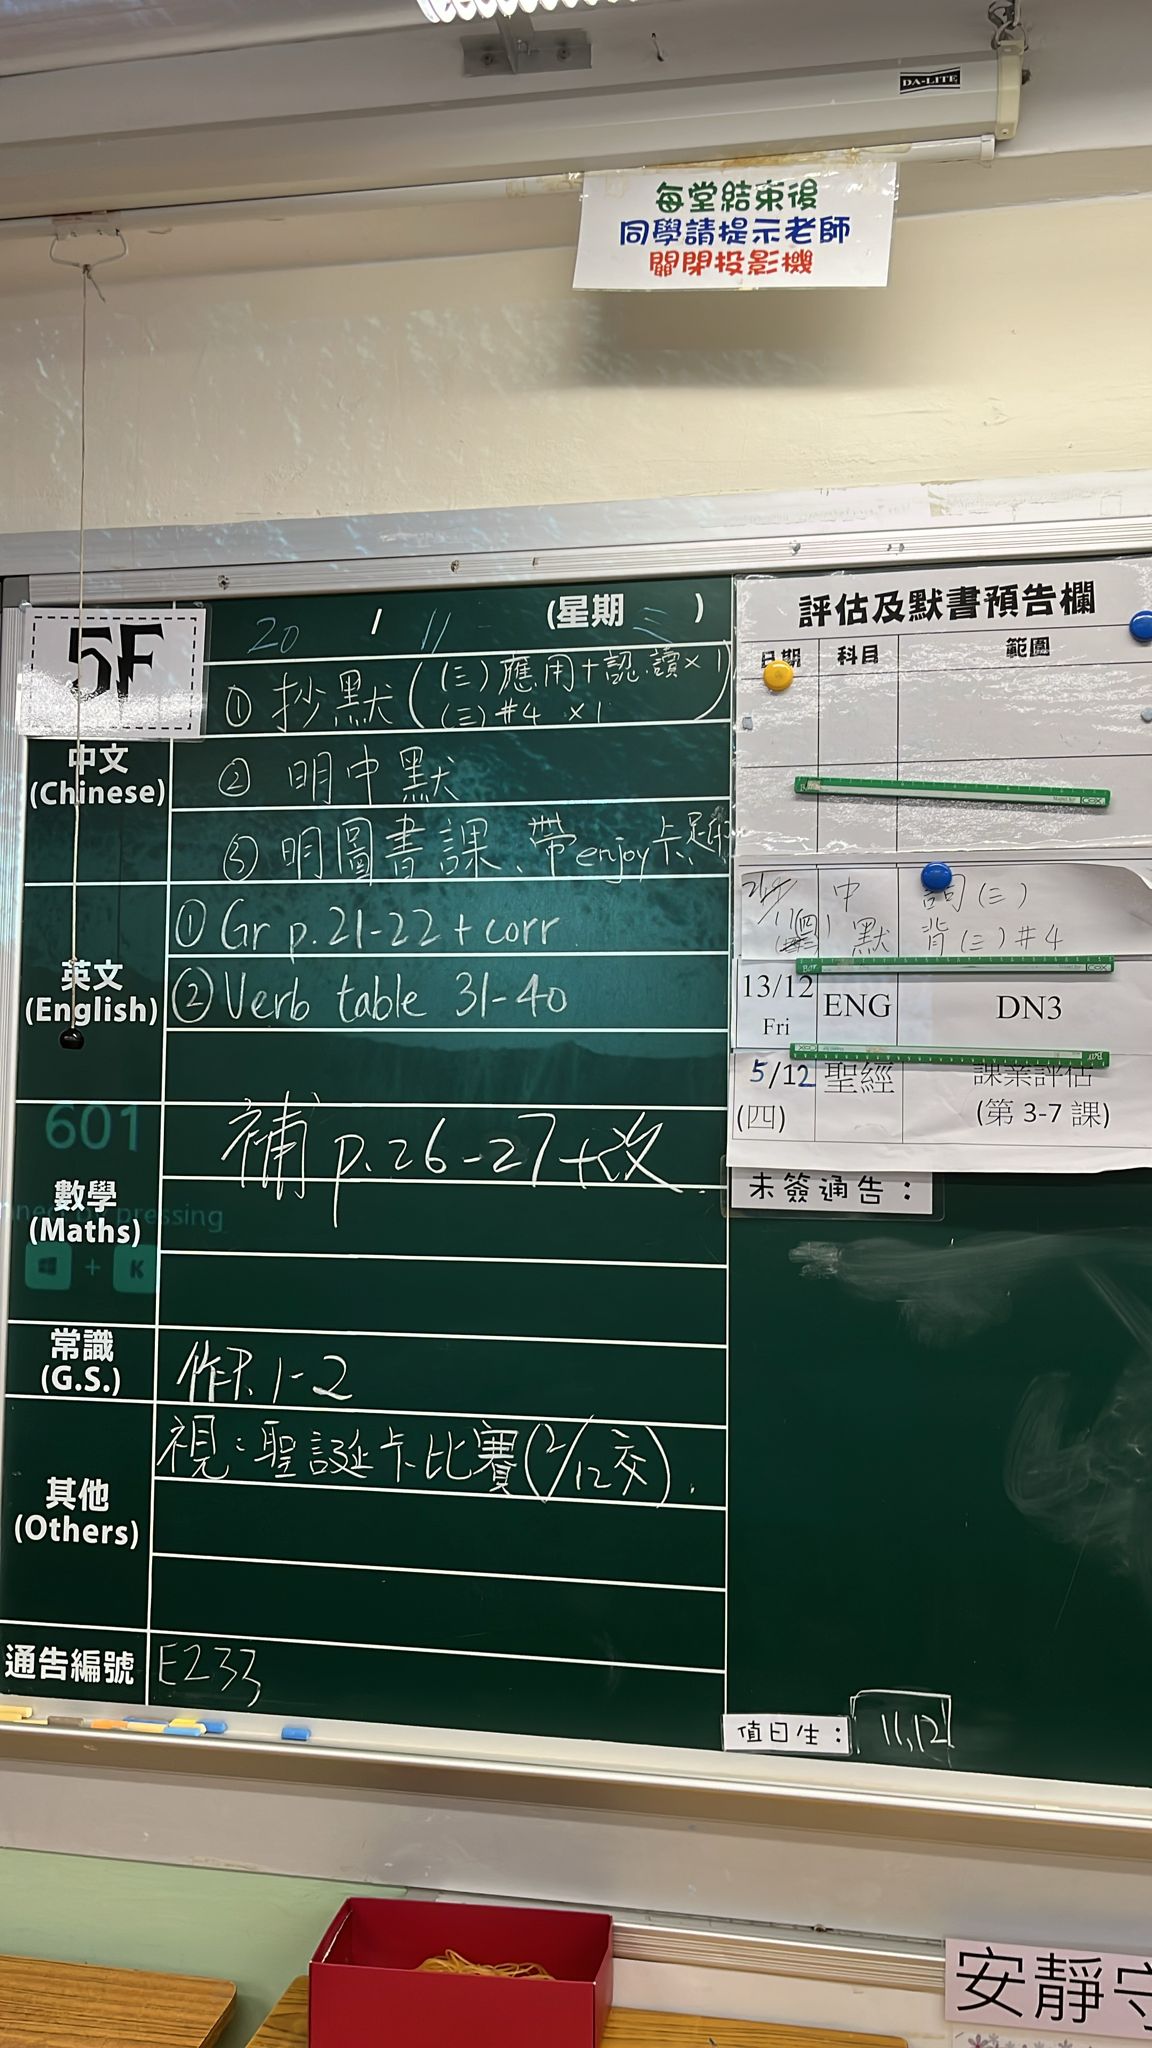 DA-LITE
每堂結束後
同學請提示老師
關閉投影機
5F
20 / 11 (星期三)
中文
(Chinese)
① 抄默 ( (三) 應用+認讀×1
(三) #4 ×1 )
② 明中默
③ 明圖書課、帶enjoy卡
英文
(English)
① Gr p.21-22 + corr
② Verb table 31-40
601
數學
(Maths)
補 p.26-27+改
pressing
+ K
常識
(G.S.)
作P.1-2
其他
(Others)
視：聖誕卡比賽(2/12交).
通告編號
E233
評估及默書預告欄
日期 科目 範圍
(四) 中默 詞(三)
背(三)#4
13/12
Fri
ENG
DN3
5/12
(四)
聖經
課業評估
(第 3-7 課)
未簽通告：
值日生：
11,12
安靜守